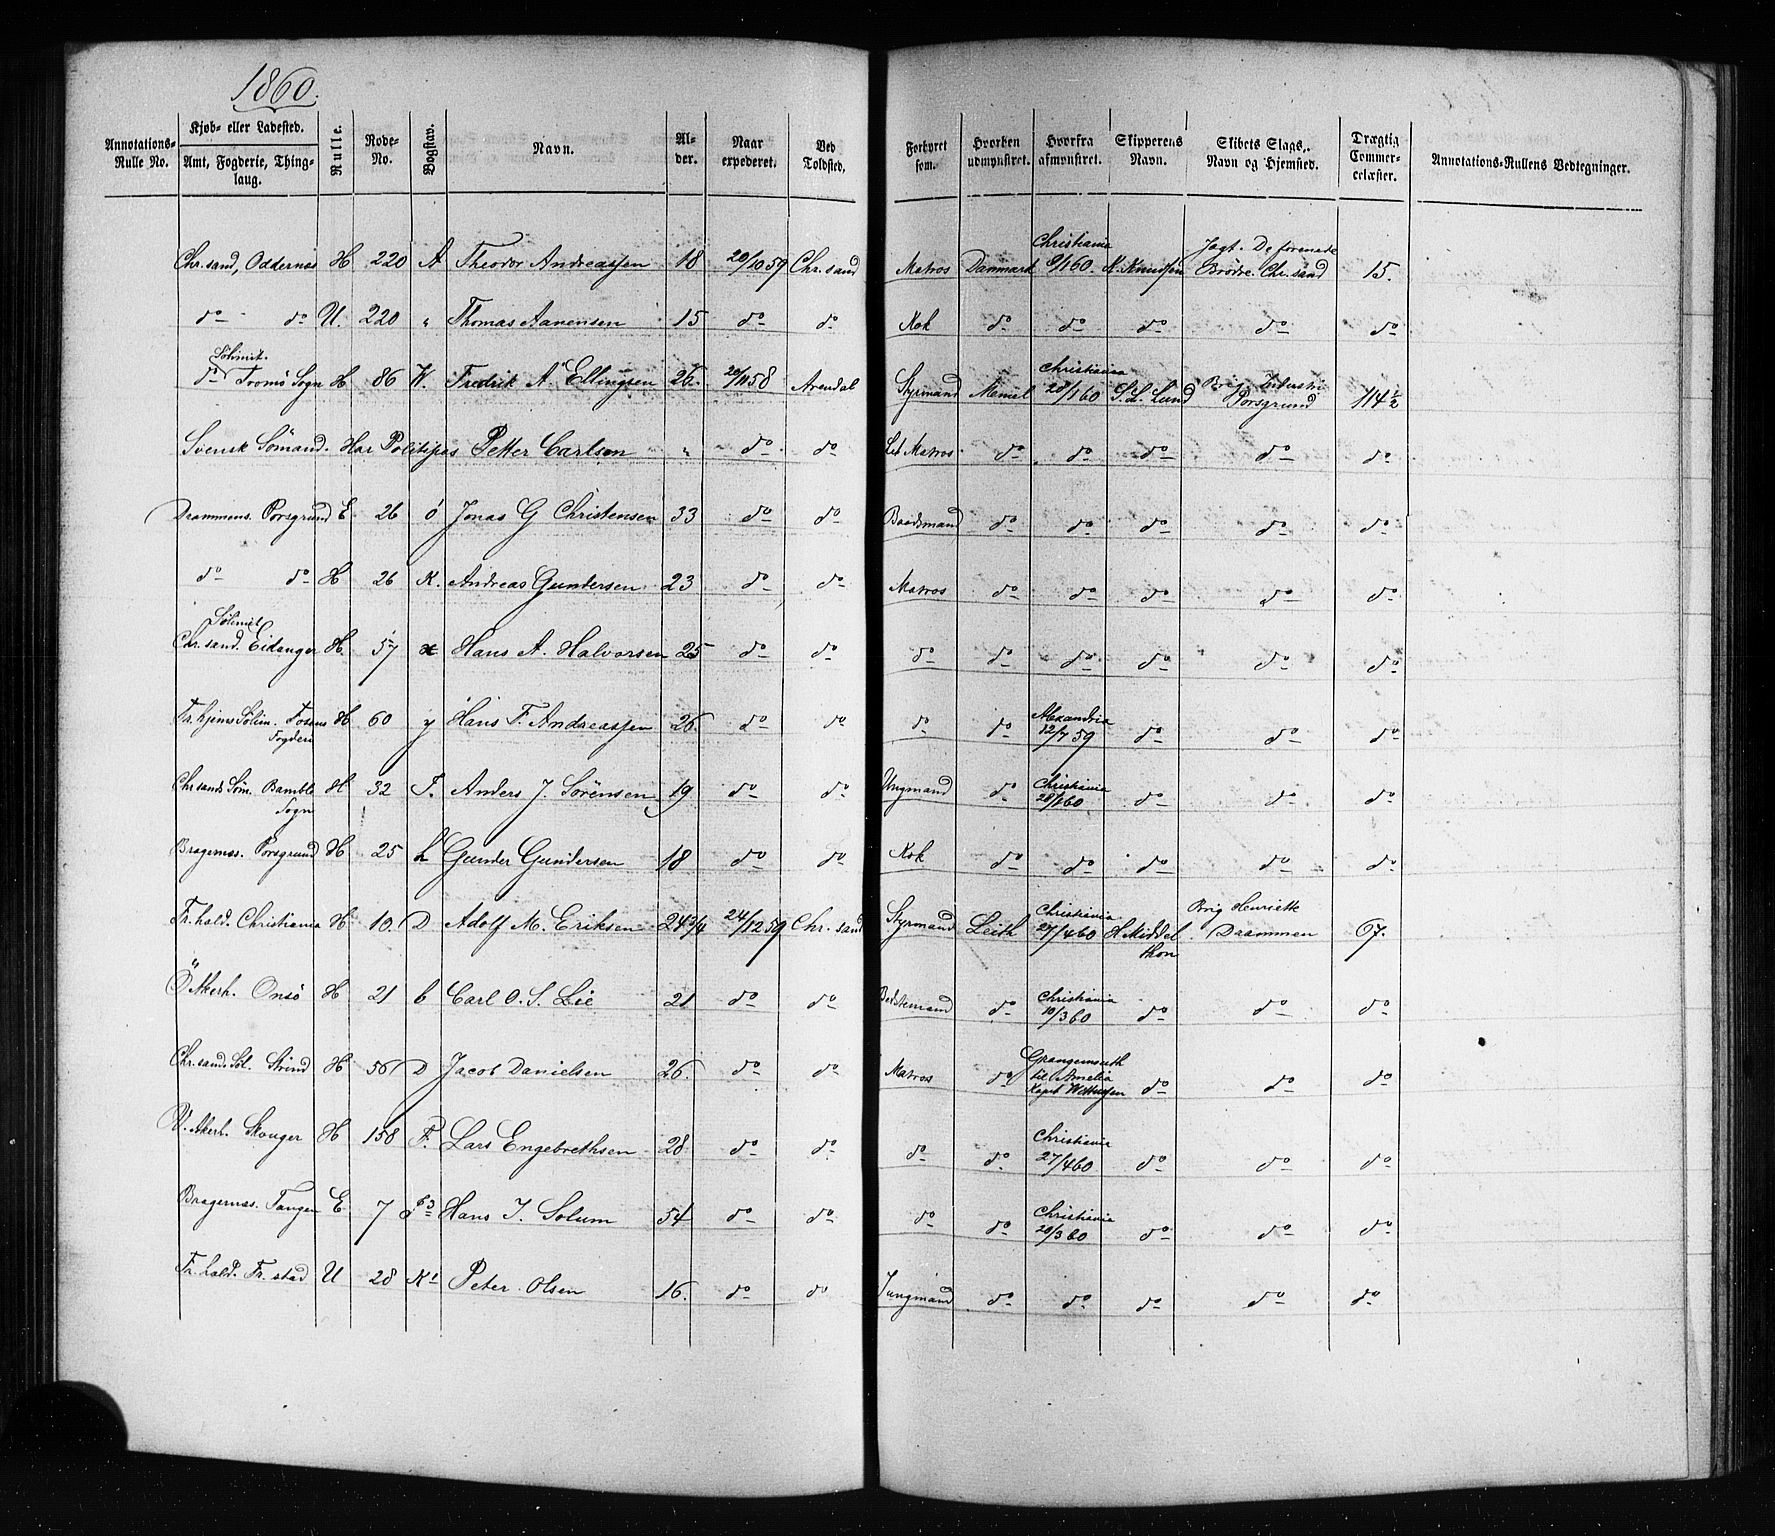 1860.
Annotations-Rulle No. | Kjøb- eller Ladested. Amt, Fogderie, Thinglaug. | Rulle. | Rode-No. | Bogstav. | Navn. | Alder. | Naar expederet. | Ved Toldsted. | Forhyret som. | Hvorhen udmynstret. | Hvorfra afmynstret. | Skipperens Navn. | Skibets Slags, Navn og Hjemsted. | Drægtig Commercelæster. | Annotations-Rullens Vedtegninger.
Chr.sand, Oddernæs | H | 220 | A | Theodor Andreassen | 18 | 20/10 59 | Chr.sand | Matros | Danmark | Christiania 9/1 60 | N. Knudsen | Jagt. De forenede Brødre. Chr.sand | 15.
do do | U. | 220 | " | Thomas Aanensen | 15 | do | do | Kok | do | do | do | do | do
do Sølimit. Tromø Sogn | H | 86 | W. | Fredrik A. Ellingsen | 26. | 20/11 58 | Arendal | Styrmand | Memel | Christiania 28/1 60 | S. L. Lund | Brig Porsgrund | 114 1/2
Svensk Sømand. Har Politipas | Petter Carlsen | " | do | do | Let Matros | do | do | do | do | do
Drammens. Porsgrund | E | 26 | ó | Jonas G Christensen | 33 | do | do | Baadsmand | do | do | do | do | do
do do | H | 26 | K. | Andreas Gundersen | 23 | do | do | Matros | do | do | do | do | do
Chr.sand. Sølimit Eidanger | H. | 57 | æ | Hans A. Halvorsen | 25 | do | do | do | do | do | do | do | do
Tr.hjems Sølim. Fosens Fogderi | H | 60 | y | Hans F. Andreassen | 26. | do | do | do | do | Alexandria 12/7 59 | do | do | do
Chr sands Søm. Bamble Sogn | H | 32 | F. | Anders J. Sörensen | 19 | do | do | Ungmand | do | Christiania 28/1 60 | do | do | do
Bragernæs. Porsgrund | H | 25 | h | Gunder Gundersen | 18 | do | do | Kok | do | do | do | do | do
Fr.hald. Christiania | H | 10. | D | Adolf M. Eriksen | 24 3/4 | 24/12 59 | Chr. sand | Styrmand | Leith | Christiania 27/4 60 | H Middelthon | Brig Henriette Drammen | 67.
Ö Akerh. Onsö | H | 21 | b | Carl O. S. Lie | 21 | do | do | Bedstemand | do | Christiania 10/3 60 | do | do | do
Chr.sands Søl. Strind | H | 56 | D | Jacob Danielsen | 26. | do | do | Matros | do | Grangemouth til Amelia Kapt Wittusen | do | do | do
V. Akerh. Skouger | H | 158 | F. | Lars Engebrethsen | 28 | do | do | do | do | Christiania 27/4 60 | do | do | do
Bragernæs. Tangen | E. | 7 | Hans J. Solum | 54 | do | do | do | do | Christiania 20/3 60 | do | do | do
Fr.hald. Fr.stad | U | 28 | K1 | Peter Olsen | 16. | do | do | Jungmand | do | do | do | do | do